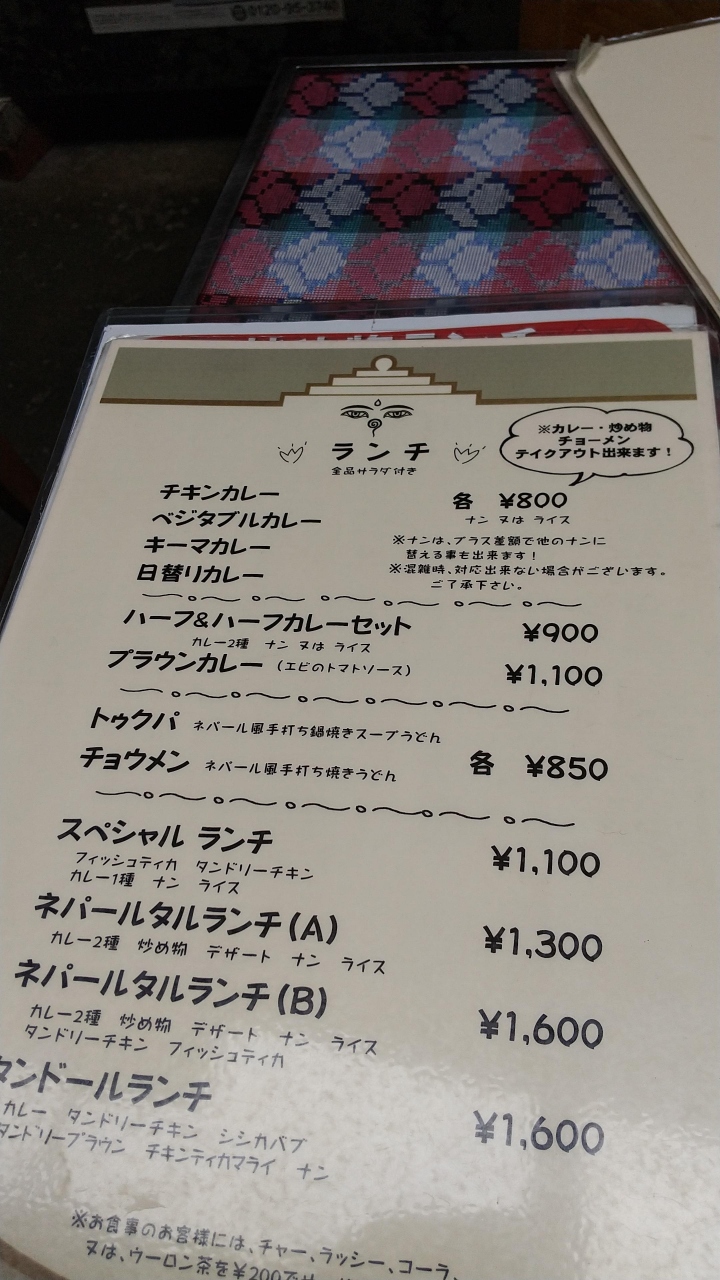 0120-95-3740
ランチ
※カレー・炒め物
チョーメン
テイクアウト出来ます！
ランチ
全品サラダ付き
チキンカレー 各 ¥800
ベジタブルカレー ナン又はライス
キーマカレー ※ナンは、プラス差額で他のナンに
替える事も出来ます！
日替りカレー ※混雑時、対応出来ない場合がございます。
ご了承下さい。
ハーフ&ハーフカレーセット ¥900
カレー2種 ナン又はライス
プラウンカレー (エビのトマトソース) ¥1,100
トゥクパ ネパール風手打ち鍋焼きスープうどん
チョウメン ネパール風手打ち焼きうどん 各 ¥850
スペシャル ランチ ¥1,100
フィッシュティカ タンドリーチキン
カレー1種 ナン ライス
ネパールタルランチ(A) ¥1,300
カレー2種 炒め物 デザート ナン ライス
ネパールタルランチ(B) ¥1,600
カレー2種 炒め物 デザート ナン ライス
タンドリーチキン フィッシュティカ
タンドールランチ ¥1,600
カレー タンドリーチキン シシカバブ
タンドリープラウン チキンティカマライ ナン
※お食事のお客様には、チャー、ラッシー、コーラ、
又は、ウーロン茶を¥200で